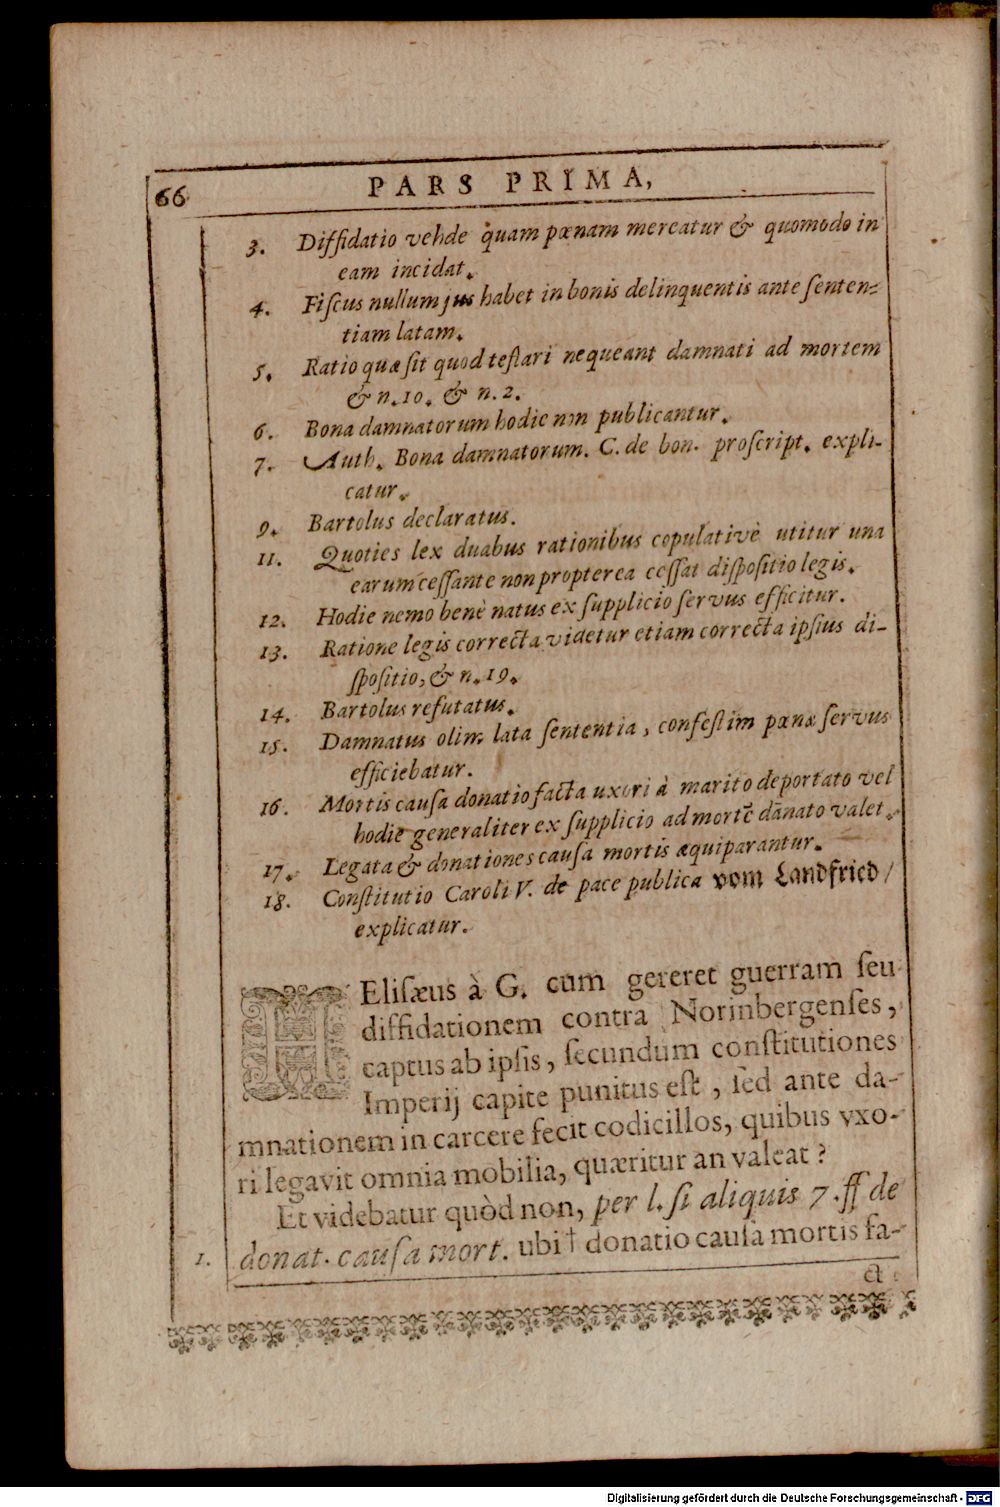 66
PARS PRIMA,
3. Diffidatio vehde quam pœnam mereatur & quomodo in
eam incidat.
4. Fiſcus nullum jus habet in bonis delinquentis ante ſenten-
tiam latam.
5. Ratio quæ ſit quod teſtari nequeant damnati ad mortem
& n. 10. & n. 2.
6. Bona damnatorum hodie non publicantur.
7. Auth. Bona damnatorum. C. de bon. proſcript. expli-
catur.
9. Bartolus declaratus.
11. Quoties lex duabus rationibus copulativè utitur una
earum ceſſante non propterea ceſſat diſpoſitio legis.
12. Hodie nemo benè natus ex ſupplicio ſervus efficitur.
13. Ratione legis correcta videtur etiam correcta ipſius di-
ſpoſitio, & n. 19.
14. Bartolus refutatus.
15. Damnatus olim lata ſententia, confeſtim pœnæ ſervus
efficiebatur.
16. Mortis cauſa donatio facta uxori à marito deportato vel
hodiè generaliter ex ſupplicio ad mortē dānato valet.
17. Legata & donationes cauſa mortis æquiparantur.
18. Conſtitutio Caroli V. de pace publica vom Landfried/
explicatur.
HEliſæus à G. cum gereret guerram ſeu
diffidationem contra Norinbergenſes,
captus ab ipſis, ſecundum conſtitutiones
Imperij capite punitus eſt, ſed ante da-
mnationem in carcere fecit codicillos, quibus vxo-
ri legavit omnia mobilia, quæritur an valeat?
Et videbatur quòd non, per l. ſi aliquis 7. ff de
1. donat. cauſa mort. ubi † donatio cauſa mortis fa-
ct
Digitalisierung gefördert durch die Deutsche Forschungsgemeinschaft - DFG